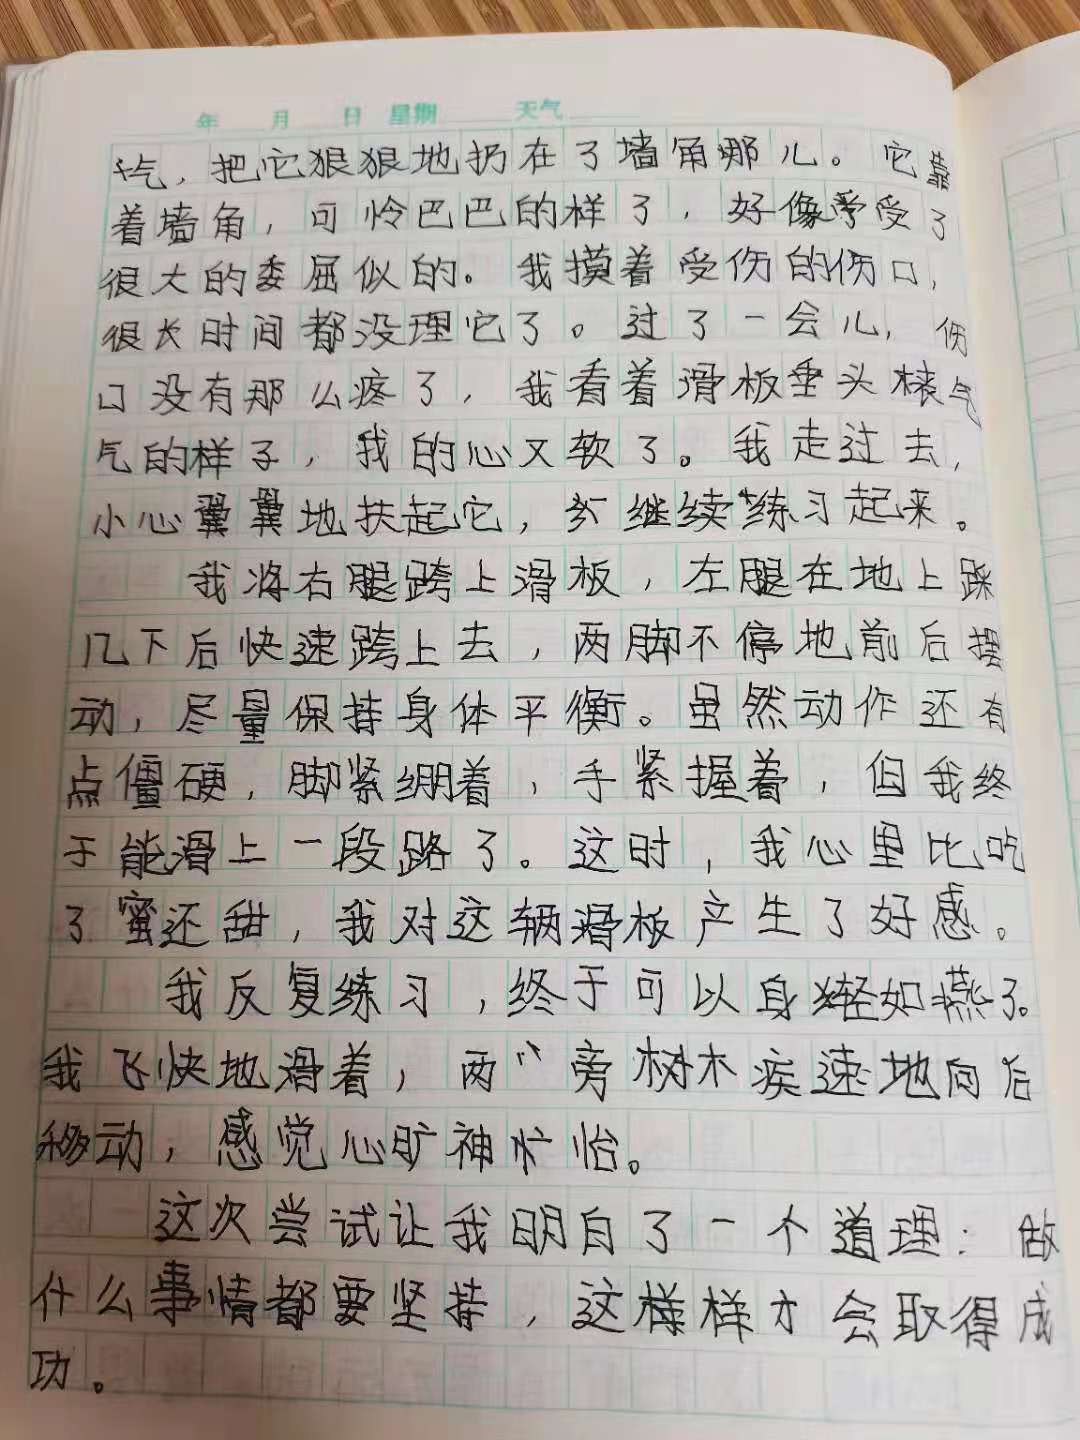 年 月 日 星期 天气
气，把它狠狠地扔在了墙角那儿。它靠
着墙角，可怜巴巴的样了，好像受了
很大的委屈似的。我摸着受伤的伤口，
很长时间都没理它了。过了一会儿，伤
口没有那么疼了，我看着滑板垂头丧气
气的样子，我的心又软了。我走过去，
小心翼翼地扶起它，继续练习起来。
我将右腿跨上滑板，左腿在地上踩
几下后快速跨上去，两脚不停地前后摆
动，尽量保持身体平衡。虽然动作还有
点僵硬，脚紧绷着，手紧握着，但我终
于能滑上一段路了。这时，我心里比吃
了蜜还甜，我对这辆滑板产生了好感。
我反复练习，终于可以身轻如燕了。
我飞快地滑着，两旁树木疾速地向后
移动，感觉心旷神怡。
这次尝试让我明白了一个道理：做
什么事情都要坚持，这样样才会取得成
功。